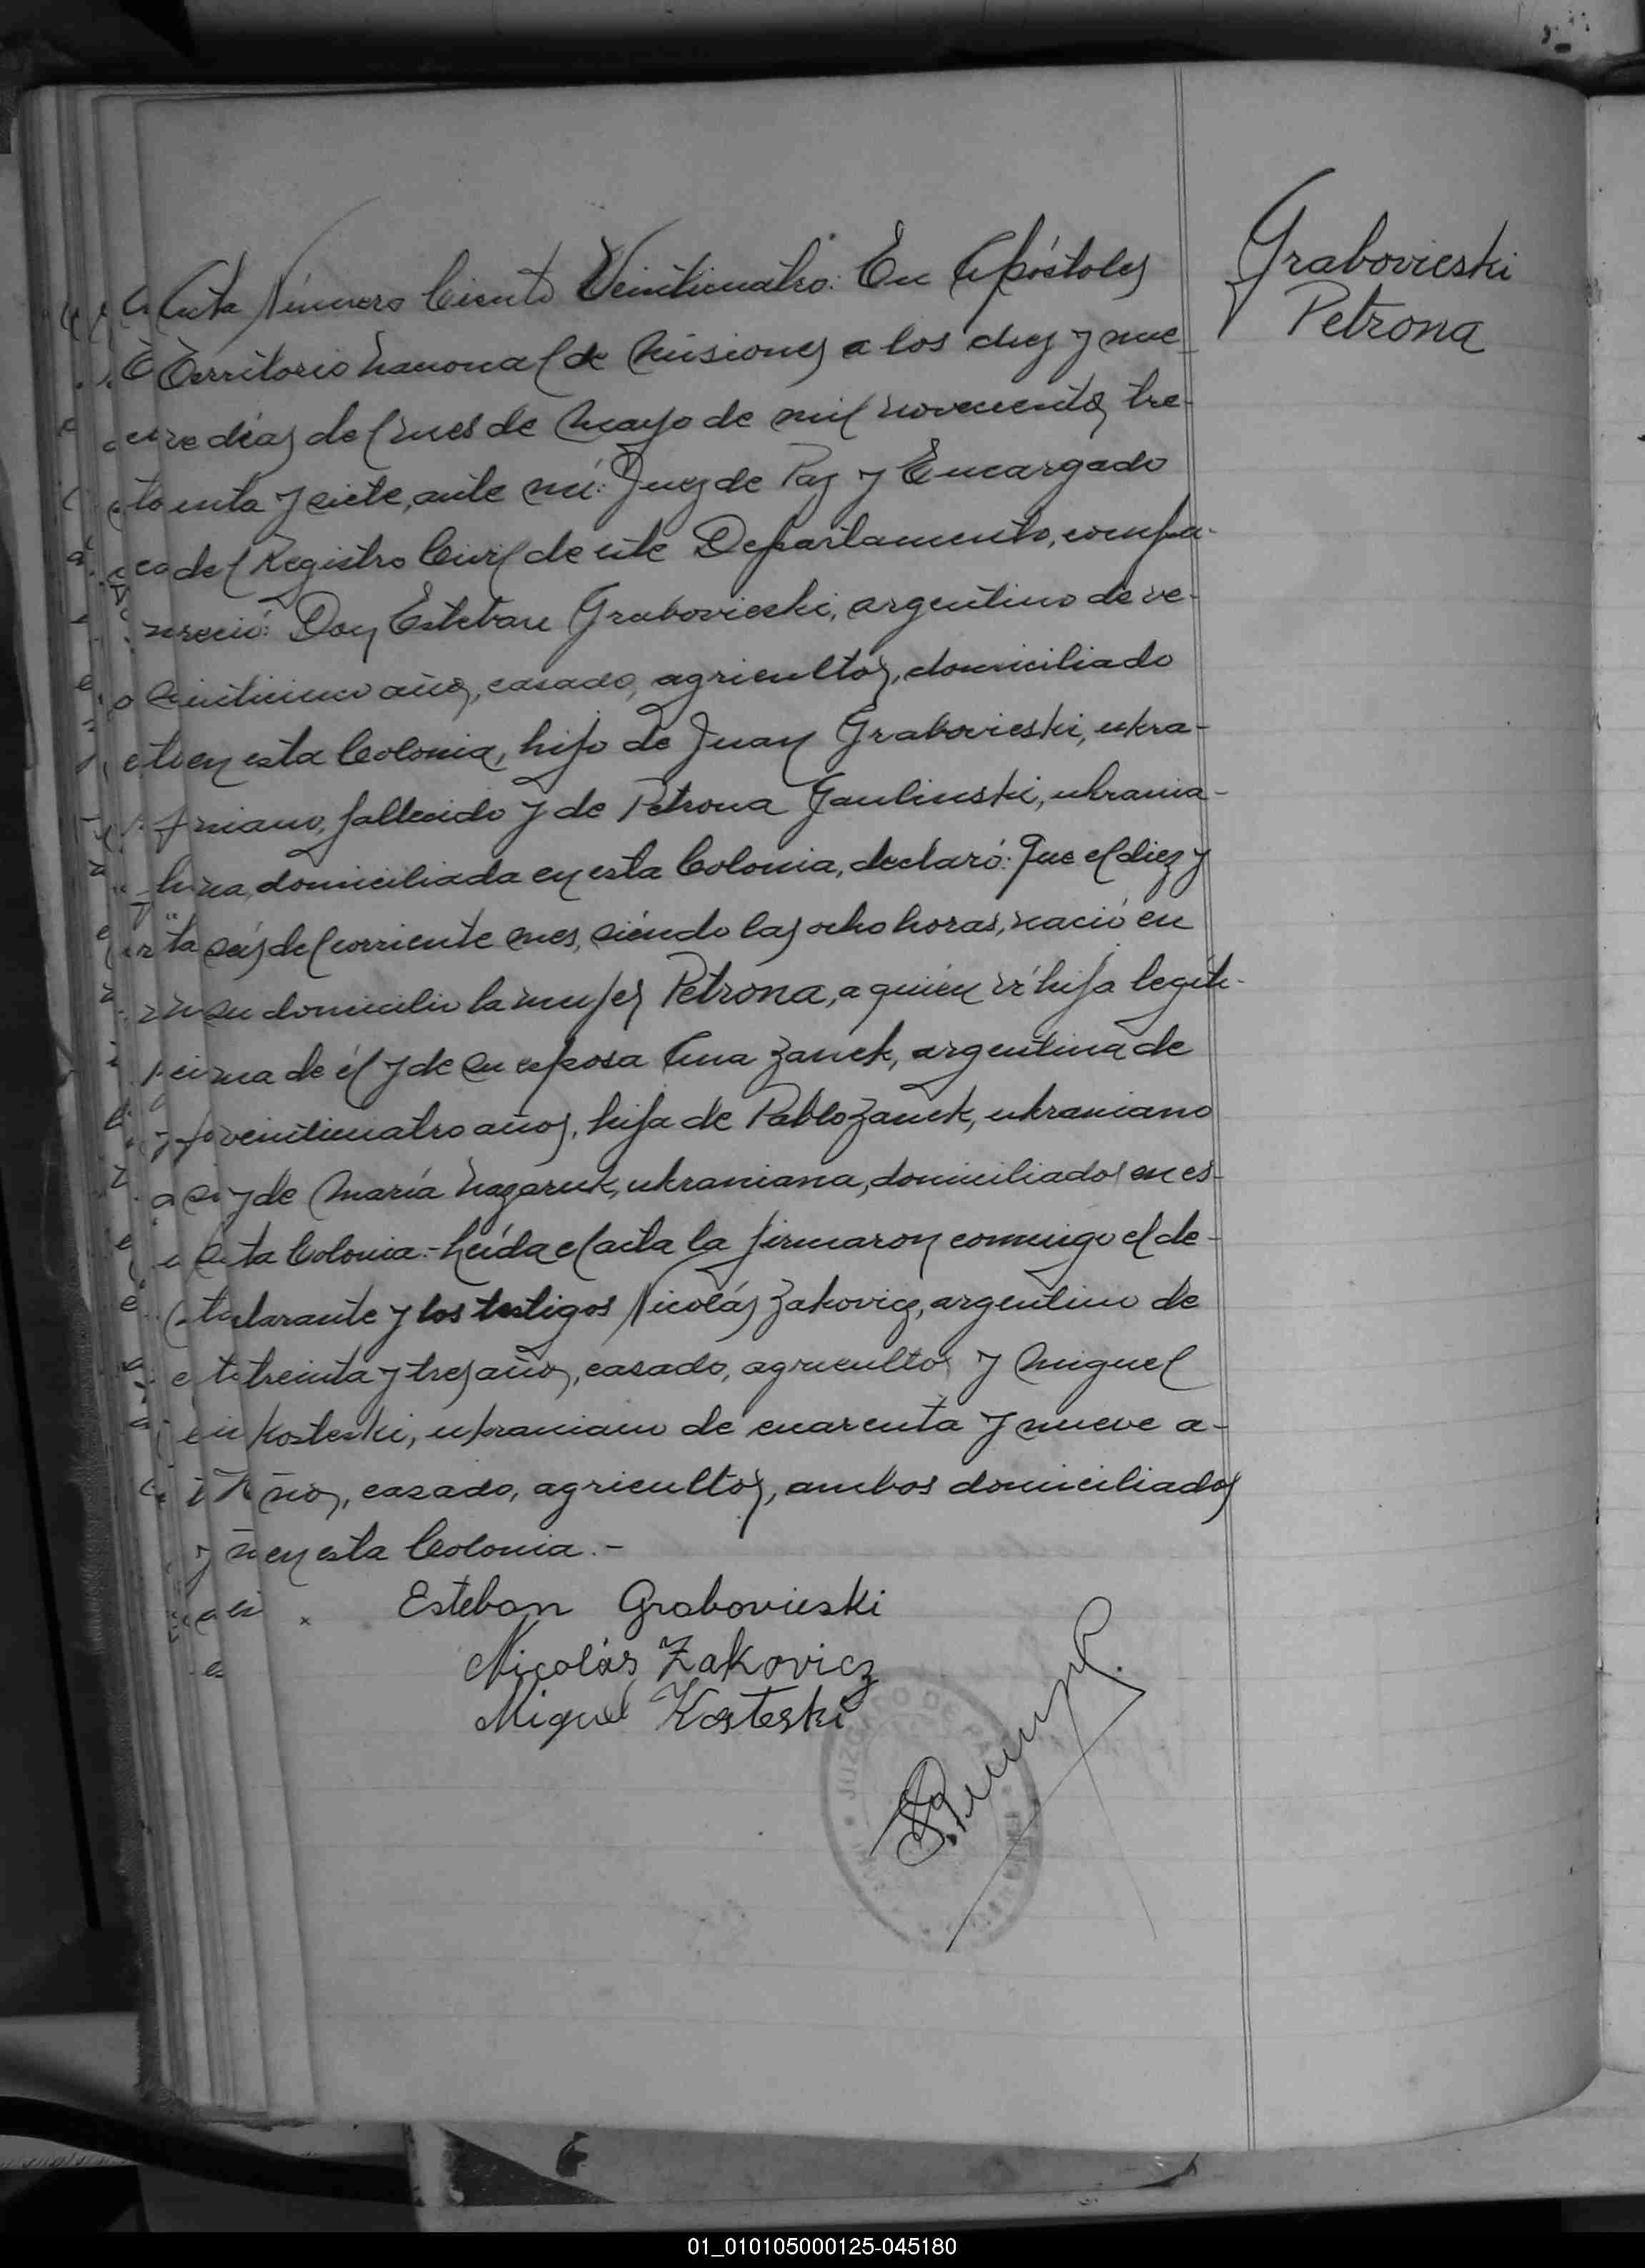 Grabovieski
Petrona
Acta Número Ciento Veinticuatro: En Apóstoles
Territorio Nacional de Misiones a los diez y nue-
ve días del mes de Mayo de mil novecientos tre-
inta y siete, ante mí: Juez de Paz y Encargado
del Registro Civil de este Departamento, compa-
reció: Don Esteban Grabovieski, argentino de ve-
inticinco años, casado, agricultor, domiciliado
en esta Colonia, hijo de Juan Grabovieski, ukra-
niano, fallecido y de Petrona Gaulinski, ukrania-
na, domiciliada en esta Colonia, declaró: Que el diez y
seis del corriente mes, siéndo las ocho horas, nació en
su domicilio la mujer Petrona, a quién ví hija legíti-
ma de él y de su esposa Ana Zanek, argentina de
veinticuatro años, hija de Pablo Zanek, ukraniano
y de María Nazaruk, ukraniana, domiciliados en es-
ta Colonia.- Leída el acta la firmaron conmigo el de-
clarante y los testigos Nicolás Zakovicz, argentino de
treinta y tres años, casado, agricultor y Miguel
Kosteski, ukraniano de cuarenta y nueve a-
ños, casado, agricultor, ambos domiciliados
en esta Colonia.-
x Esteban Grabovieski
Nicolás Zakovicz
Miguel Kosteski
JUZGADO DE PAZ
01_010105000125-045180